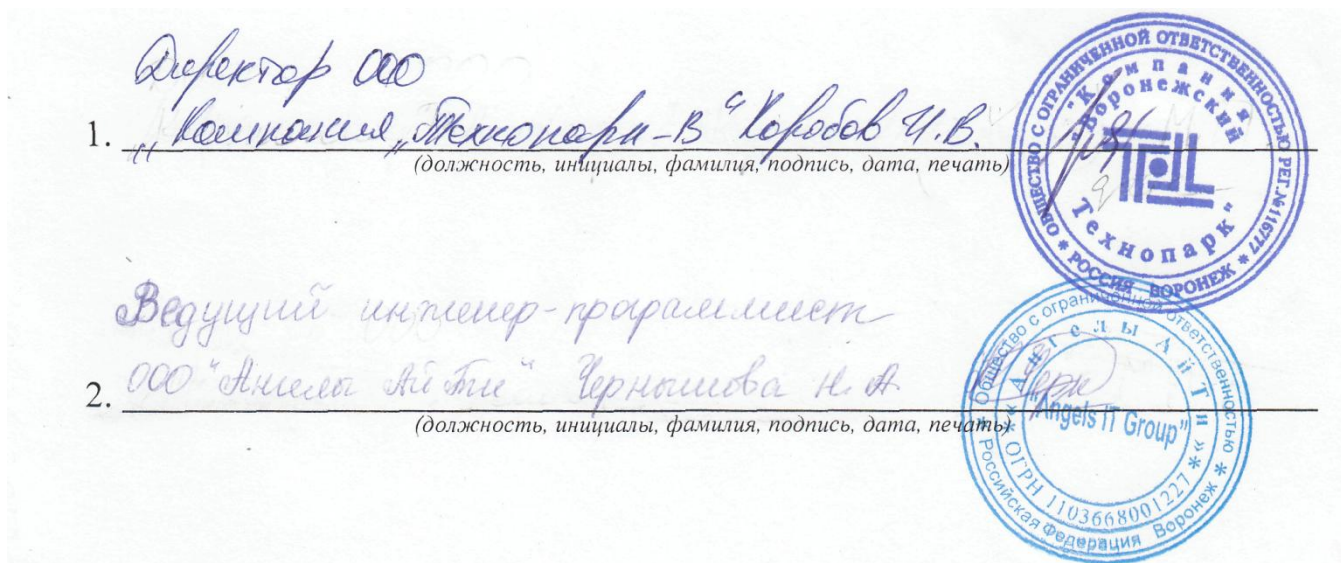 Директор ООО
1. „Компания „Технопарк-В“ Коробов И.В.
(должность, инициалы, фамилия, подпись, дата, печать)
ОБЩЕСТВО С ОГРАНИЧЕННОЙ ОТВЕТСТВЕННОСТЬЮ РЕГ.№116777
* РОССИЯ ВОРОНЕЖ *
"Компания
"Воронежский
Технопарк"
Ведущий инженер-программист
2. ООО "Ангелы Ай Ти" Чернышова Н.А.
(должность, инициалы, фамилия, подпись, дата, печать)
* Общество с ограниченной ответственностью *
Российская Федерация Воронеж
* « Ангелы Ай Ти » *
ОГРН 1103668001227
"Angels IT Group"